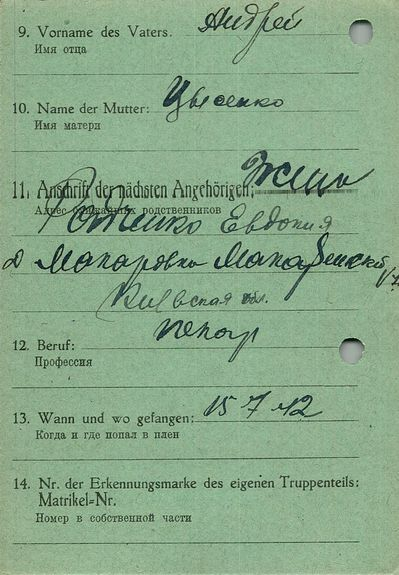 9. Vorname des Vaters. Андрей
Имя отца
10. Name der Mutter: Цысенко
Имя матери
11. Anschrift der nächsten Angehörigen: Жена
Адрес ближайших родственников
Евдокия
д Макаровка Макаровский
Киевская обл.
12. Beruf: пекарь
Профессия
13. Wann und wo gefangen: 15 7 42
Когда и где попал в плен
14. Nr. der Erkennungsmarke des eigenen Truppenteils:
Matrikel-Nr.
Номер в собственной части